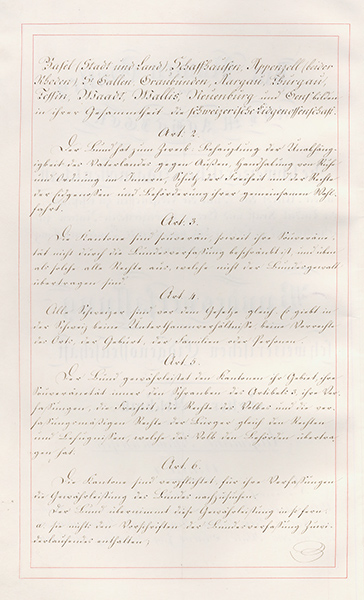 Basel (Stadt und Land), Schaffhausen, Appenzell (beider
Rhoden), St. Gallen, Graubünden, Aargau, Thurgau,
Tessin, Waadt, Wallis, Neuenburg und Genf bilden
in ihrer Gesammtheit die schweizerische Eidgenossenschaft.
Art. 2.
Der Bund hat zum Zweck: Behauptung der Unabhän-
gigkeit des Vaterlandes gegen Außen, Handhabung von Ruhe
und Ordnung im Innern, Schutz der Freiheit und der Rechte
der Eidgenossen und Beförderung ihrer gemeinsamen Wohl-
fahrt.
Art. 3.
Die Kantone sind souverän, soweit ihre Souverän-
tät nicht durch die Bundesverfassung beschränkt ist, und üben
als solche alle Rechte aus, welche nicht der Bundesgewalt
übertragen sind.
Art. 4.
Alle Schweizer sind vor dem Gesetze gleich. Es gibt in
der Schweiz keine Unterthanenverhältnisse, keine Vorrechte
des Orts, der Geburt, der Familien oder Personen.
Art. 5.
Der Bund gewährleistet den Kantonen ihr Gebiet, ihre
Souveränetät inner den Schranken des Artikels 3, ihre Ver-
fassungen, die Freiheit, die Rechte des Volkes und die ver-
fassungsmäßigen Rechte der Bürger gleich den Rechten
und Befugnissen, welche das Volk den Behörden übertra-
gen hat.
Art. 6.
Die Kantone sind verpflichtet, für ihre Verfassungen
die Gewährleistung des Bundes nachzusuchen.
Der Bund übernimmt diese Gewährleistung insofern:
a. sie nichts den Vorschriften der Bundesverfassung Zuwi-
derlaufendes enthalten;